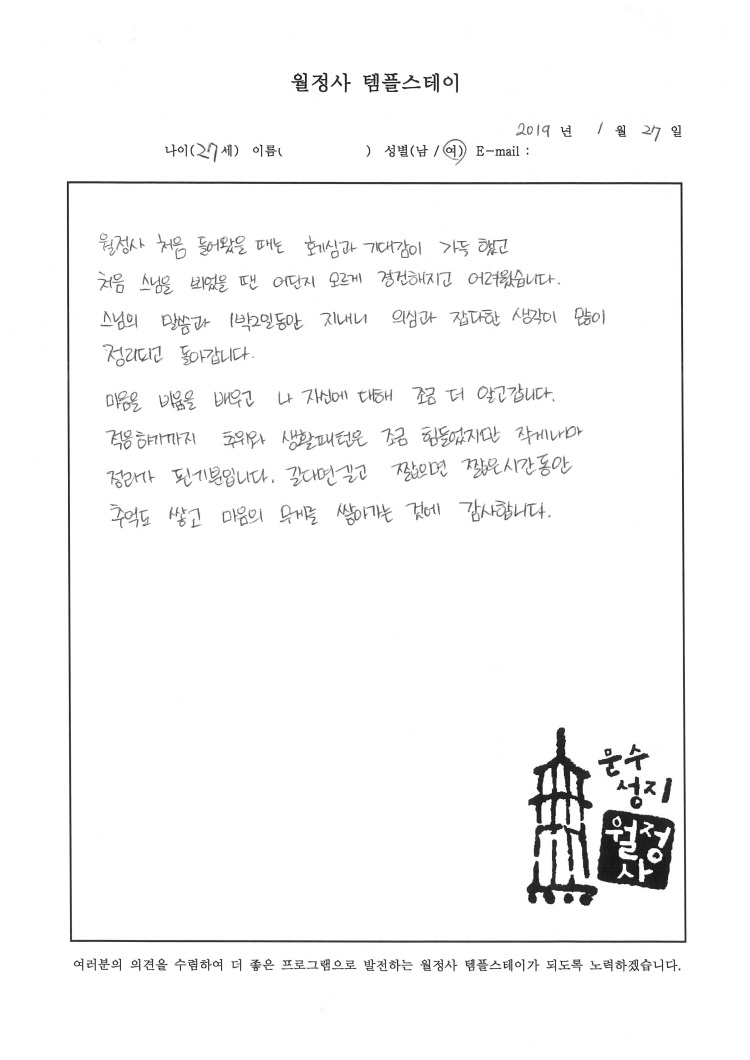 월정사 템플스테이
2019 년 1 월 27 일
나이(27세) 이름( ) 성별(남 / 여) E-mail :
월정사 처음 들어왔을 때는 호기심과 기대감이 가득 했고
처음 스님을 뵈었을 땐 어딘지 모르게 경건해지고 어려웠습니다.
스님의 말씀과 1박2일동안 지내니 의심과 잡다한 생각이 많이
정리되고 돌아갑니다.
마음을 비움을 배우고 나 자신에 대해 조금 더 알고갑니다.
적응하기까지 추위와 생활패턴은 조금 힘들었지만 작게나마
정리가 된기분입니다. 길다면길고 짧으면 짧은시간동안
추억도 쌓고 마음의 무게를 쌓아가는 것에 감사합니다.
문수
성지
월정
사
여러분의 의견을 수렴하여 더 좋은 프로그램으로 발전하는 월정사 템플스테이가 되도록 노력하겠습니다.